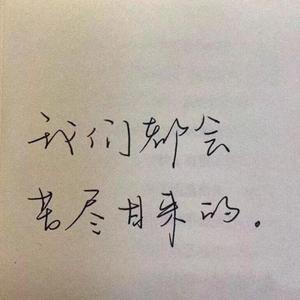 我们都会
苦尽甘来的。